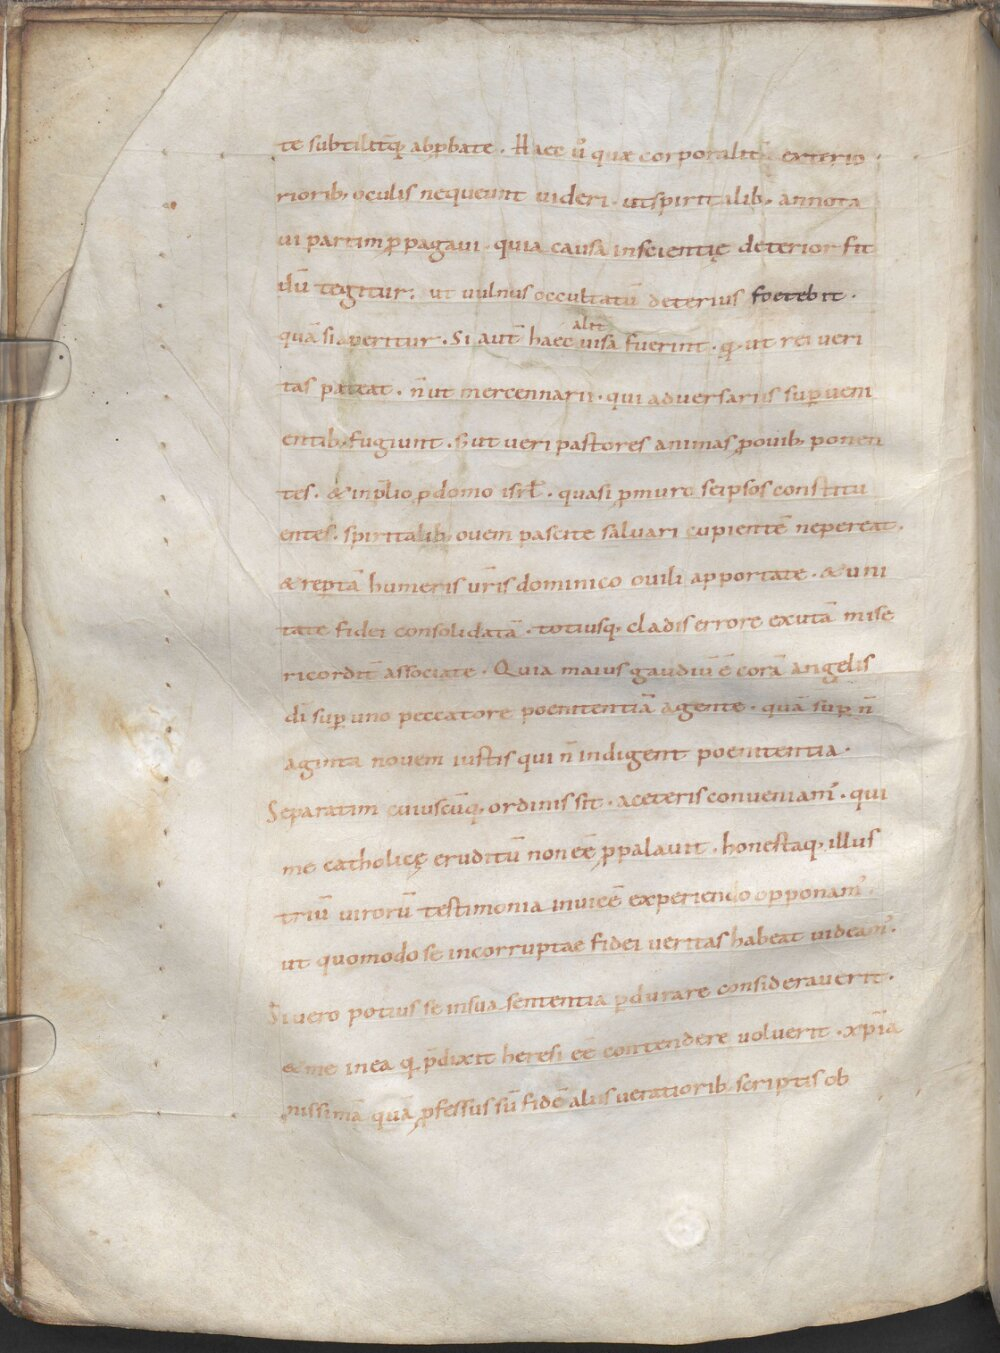 te subtilit̄q; ab p̱bate . Haec ů quae corporalit̄ exterio
riorib; oculis nequeunt uideri . ut spiritalib; annota
ui partim p̱pagaui . quia causa inscientię deterior fit
dū tegitur . ut uulnus occultatū deterius foetebit .
quā si aperitur . Si aut̄ haec uisa fuerint . q̱ ut rei ueri
alit̄
tas pateat . n̄ ut mercennarii . qui aduersariis sup̱ueni
entib; fugiunt . s; ut ueri pastores animas p̱ ouib; ponen
tes . & in p̱lio p̱ domo isrl̄ . quasi p̱ muro seipsos constitu
entes . spiritalib; ouem pascite saluari cupientē ne pereat .
& rep̱tā humeris ur̄is dominico ouili apportate . & uni
tate fidei consolidatā . totiusq; cladis errore exutā mise
ricordit̄ associate . Quia maius gaudiū ē corā angelis
dī sup̱ uno peccatore poenitentiā agente . quā sup̱ n̄
aginta nouem iustis qui n̄ indigent poenitentia .
Separatim cuiuscūq; ordinis sit . a ceteris conueniam̄ . qui
me catholicę eruditū non eē p̱palauit . honestaq; illus
triū uirorū testimonia inuicē experiendo opponam̄ .
ut quomodo se incorruptae fidei ueritas habeat uideam̄ .
Si uero potius se in sua sententia p̱durare considerauerit .
& me in ea q̱ p̄dixit heresi eē contendere uoluerit . xp̄ia
nissimā quā p̱fessus sū fidē aliis ueratiorib; scriptis ob